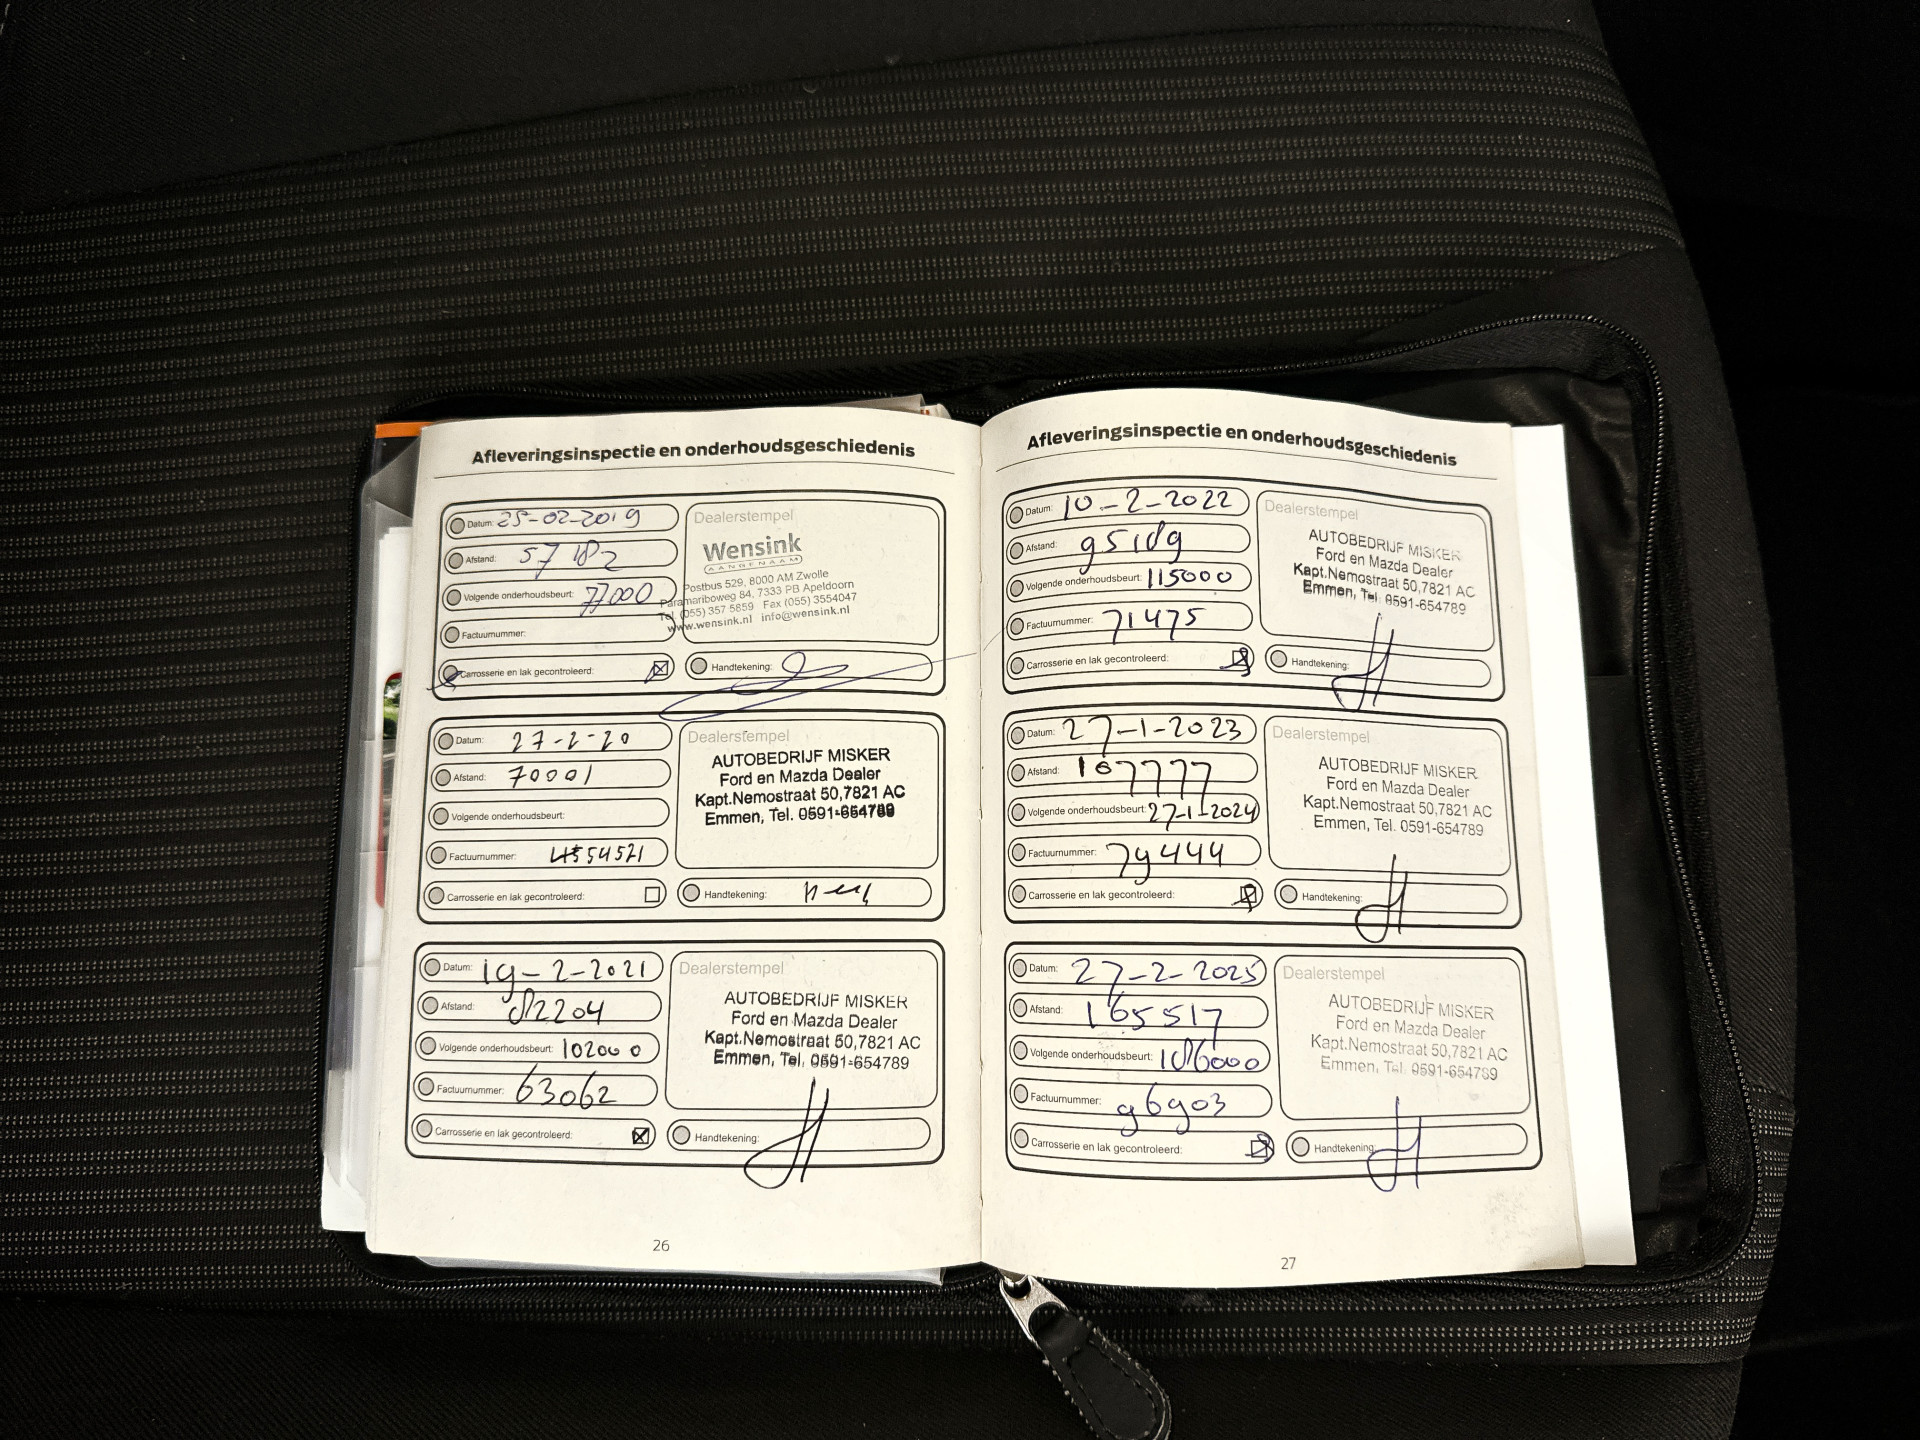 Afleveringsinspectie en onderhoudsgeschiedenis
Datum: 25-02-2019
Afstand: 57182
Volgende onderhoudsbeurt: 77000
Factuurnummer:
Carrosserie en lak gecontroleerd:
Dealerstempel
Wensink
AANGENAAM
Postbus 529, 8000 AM Zwolle
Paramariboweg 84, 7333 PB Apeldoorn
Tel. (055) 357 5859 Fax (055) 3554047
www.wensink.nl info@wensink.nl
Handtekening:
Datum: 27-2-20
Afstand: 70001
Volgende onderhoudsbeurt:
Factuurnummer:
Carrosserie en lak gecontroleerd:
Dealerstempel
AUTOBEDRIJF MISKER
Ford en Mazda Dealer
Kapt.Nemostraat 50,7821 AC
Emmen, Tel. 0591-654789
Handtekening:
Datum: 19-2-2021
Afstand: 82204
Volgende onderhoudsbeurt: 102000
Factuurnummer: 63062
Carrosserie en lak gecontroleerd:
Dealerstempel
AUTOBEDRIJF MISKER
Ford en Mazda Dealer
Kapt.Nemostraat 50,7821 AC
Emmen, Tel. 0591-654789
Handtekening:
26
Afleveringsinspectie en onderhoudsgeschiedenis
Datum: 10-2-2022
Afstand: 95189
Volgende onderhoudsbeurt: 115000
Factuurnummer: 71475
Carrosserie en lak gecontroleerd:
Dealerstempel
AUTOBEDRIJF MISKER
Ford en Mazda Dealer
Kapt.Nemostraat 50,7821 AC
Emmen, Tel. 0591-654789
Handtekening:
Datum: 27-1-2023
Afstand: 107777
Volgende onderhoudsbeurt: 27-1-2024
Factuurnummer: 79444
Carrosserie en lak gecontroleerd:
Dealerstempel
AUTOBEDRIJF MISKER
Ford en Mazda Dealer
Kapt.Nemostraat 50,7821 AC
Emmen, Tel. 0591-654789
Handtekening:
Datum: 27-2-2025
Afstand: 165517
Volgende onderhoudsbeurt: 186000
Factuurnummer: 96903
Carrosserie en lak gecontroleerd:
Dealerstempel
AUTOBEDRIJF MISKER
Ford en Mazda Dealer
Kapt.Nemostraat 50,7821 AC
Emmen, Tel. 0591-654789
Handtekening:
27